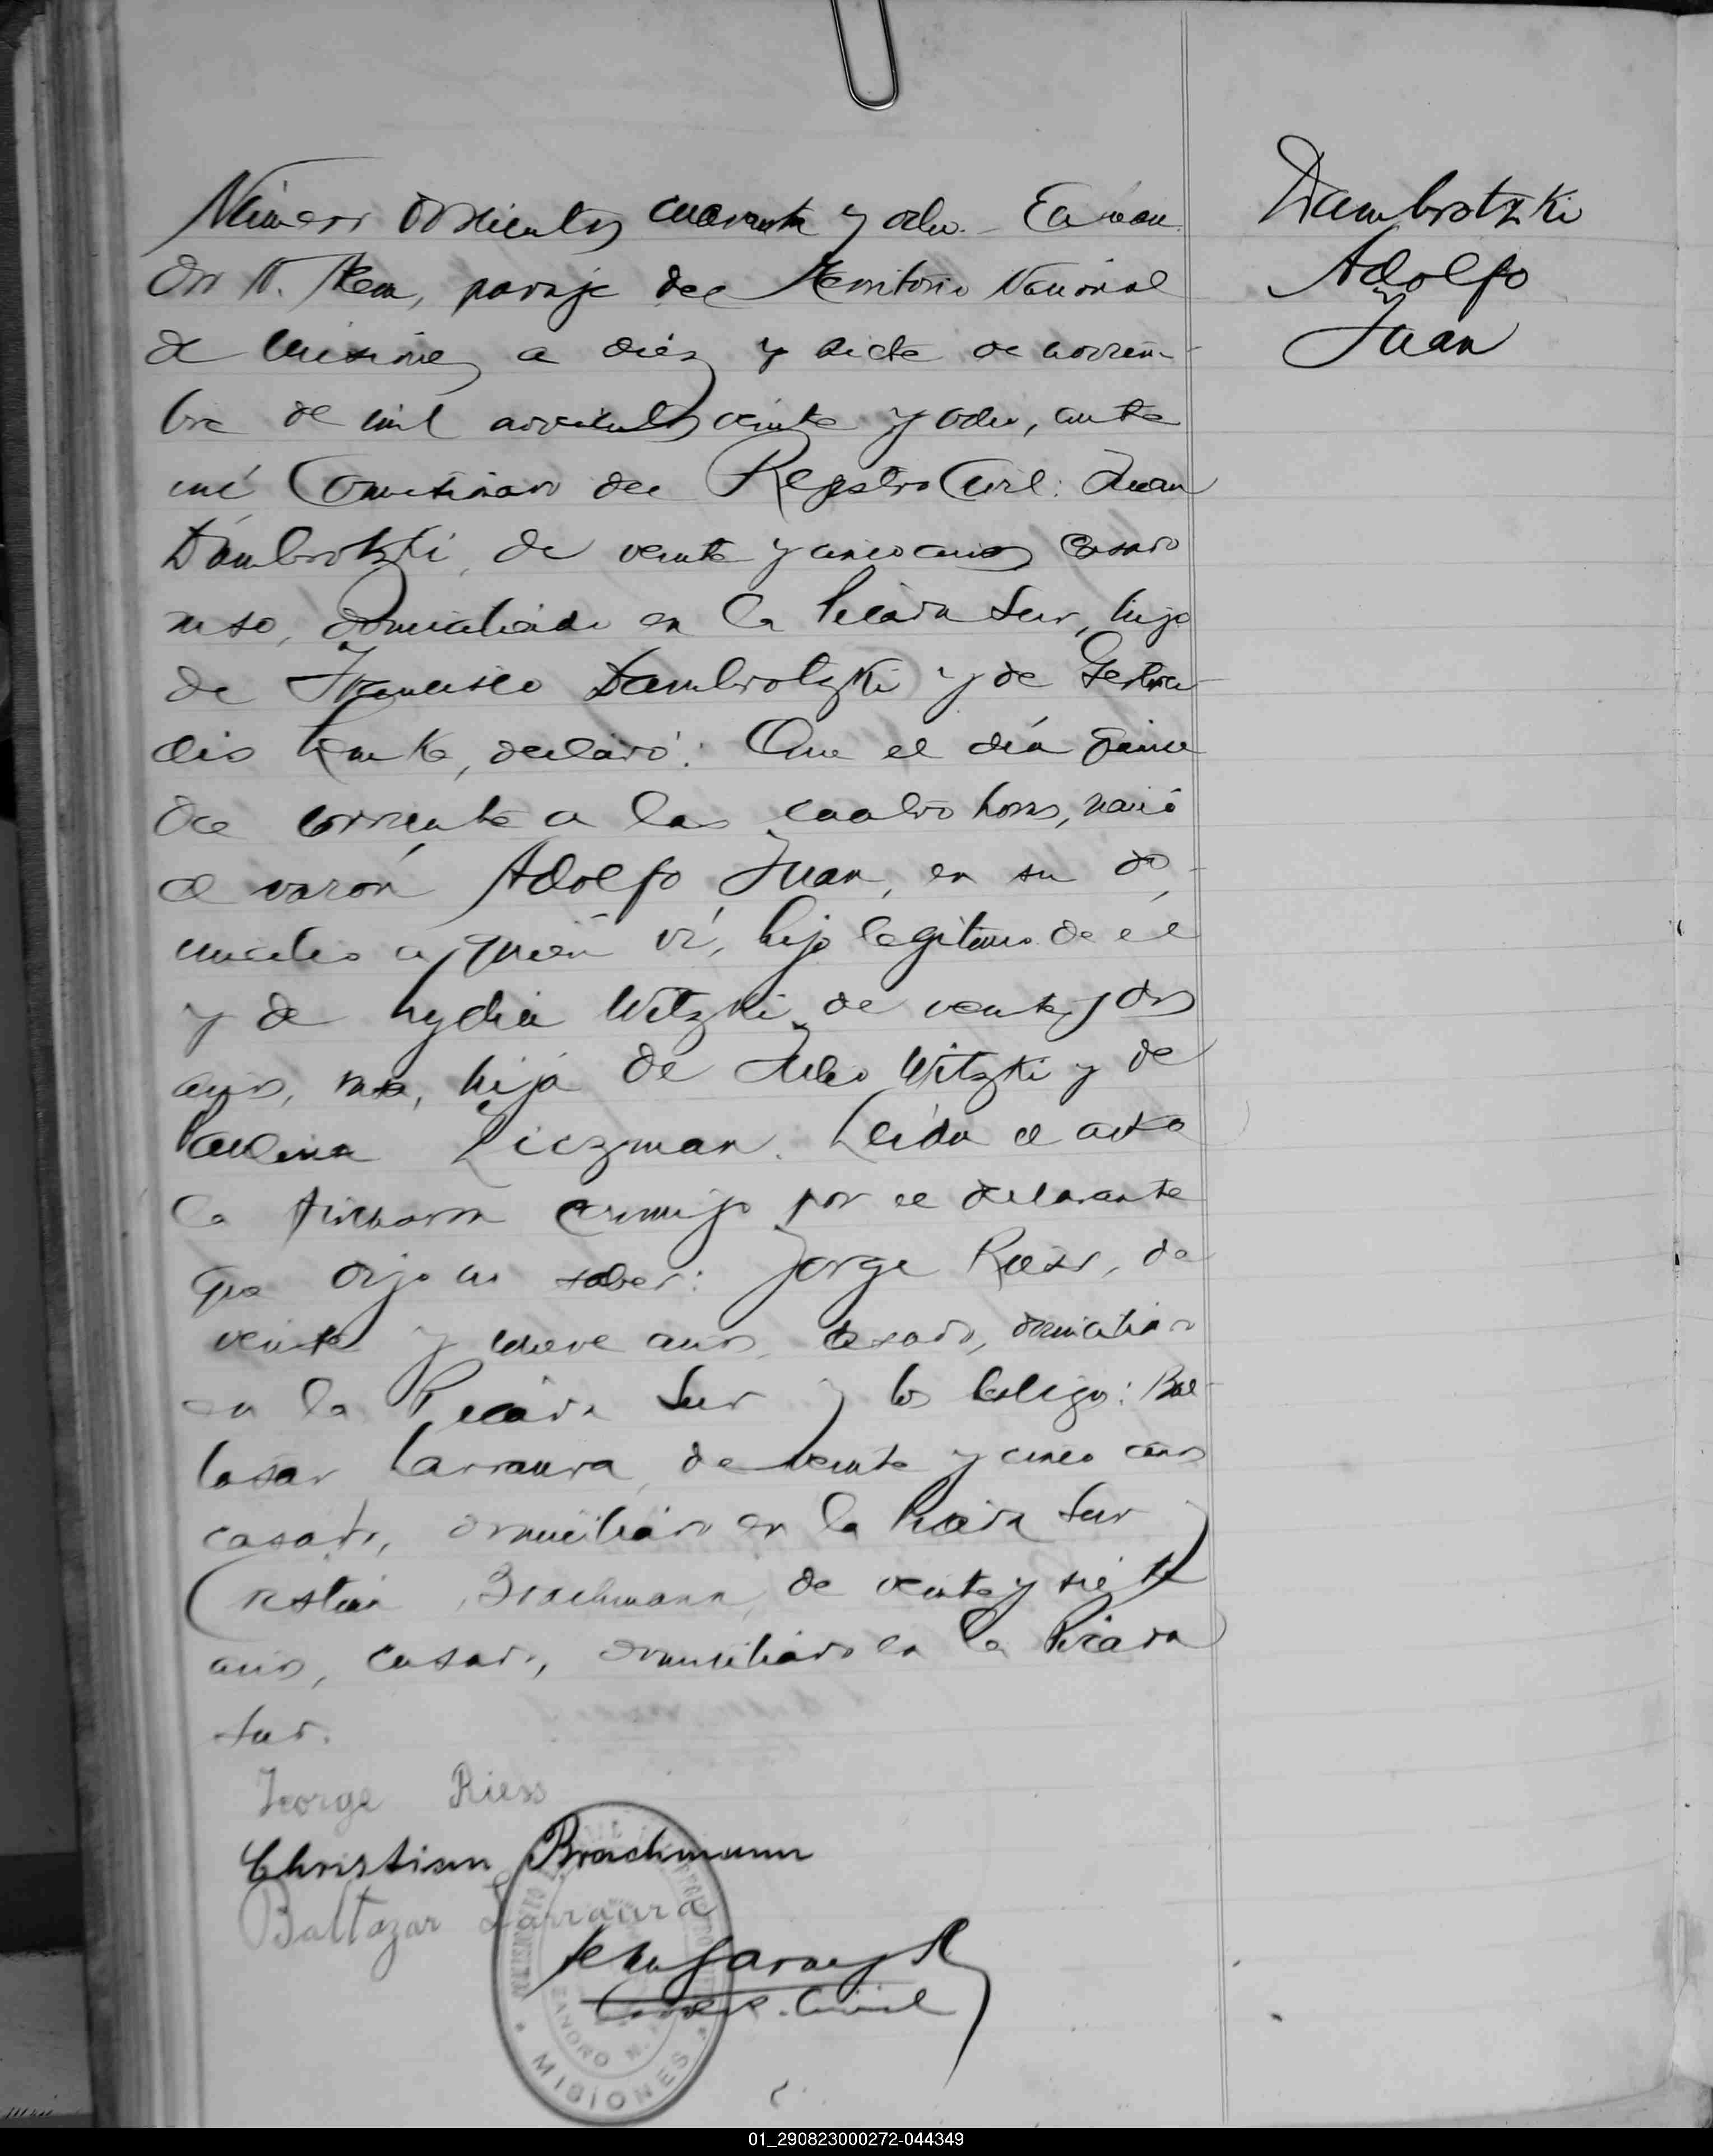 Número doscientos cuarenta y ocho.- En Lean
dro N. Alem, paraje del Territorio Nacional
de Misiones a diez y siete de noviem-
bre de mil novecientos veinte y ocho, ante
mí Comisionado del Registro Civil: Juan
Dambrotzki, de veinte y cinco años, casado
ruso, domiciliado en la Picada Sur, hijo
de Francisco Dambrotzki y de Gertru-
dis declaró: Que el día quince
del corriente a las cuatro horas, nació
el varón Adolfo Juan, en su do-
micilio a quien ví, hijo legitimo de él
y de Lydia Witzki de veinte y dos
años, rusa, hija de Julio Witzki y de
Paulina Liczman. Leída el acta
la firmaron conmigo por el declarante
que dijo no saber: Jorge Riess, de
veinte y nueve años, casado, domiciliado
en la Picada Sur y los testigos: Bal-
tasar Larraura, de veinte y cinco años
casado, domiciliado en la Picada Sur y
Cristian Brachmann, de veinte y siete
años, casado, domiciliado en la Picada
Sur.
Jeorge Riess
Christian Brachmann
Baltazar Larraura
Civil
MISIONES
Dambrotzki
Adolfo
Juan
01_290823000272-044349